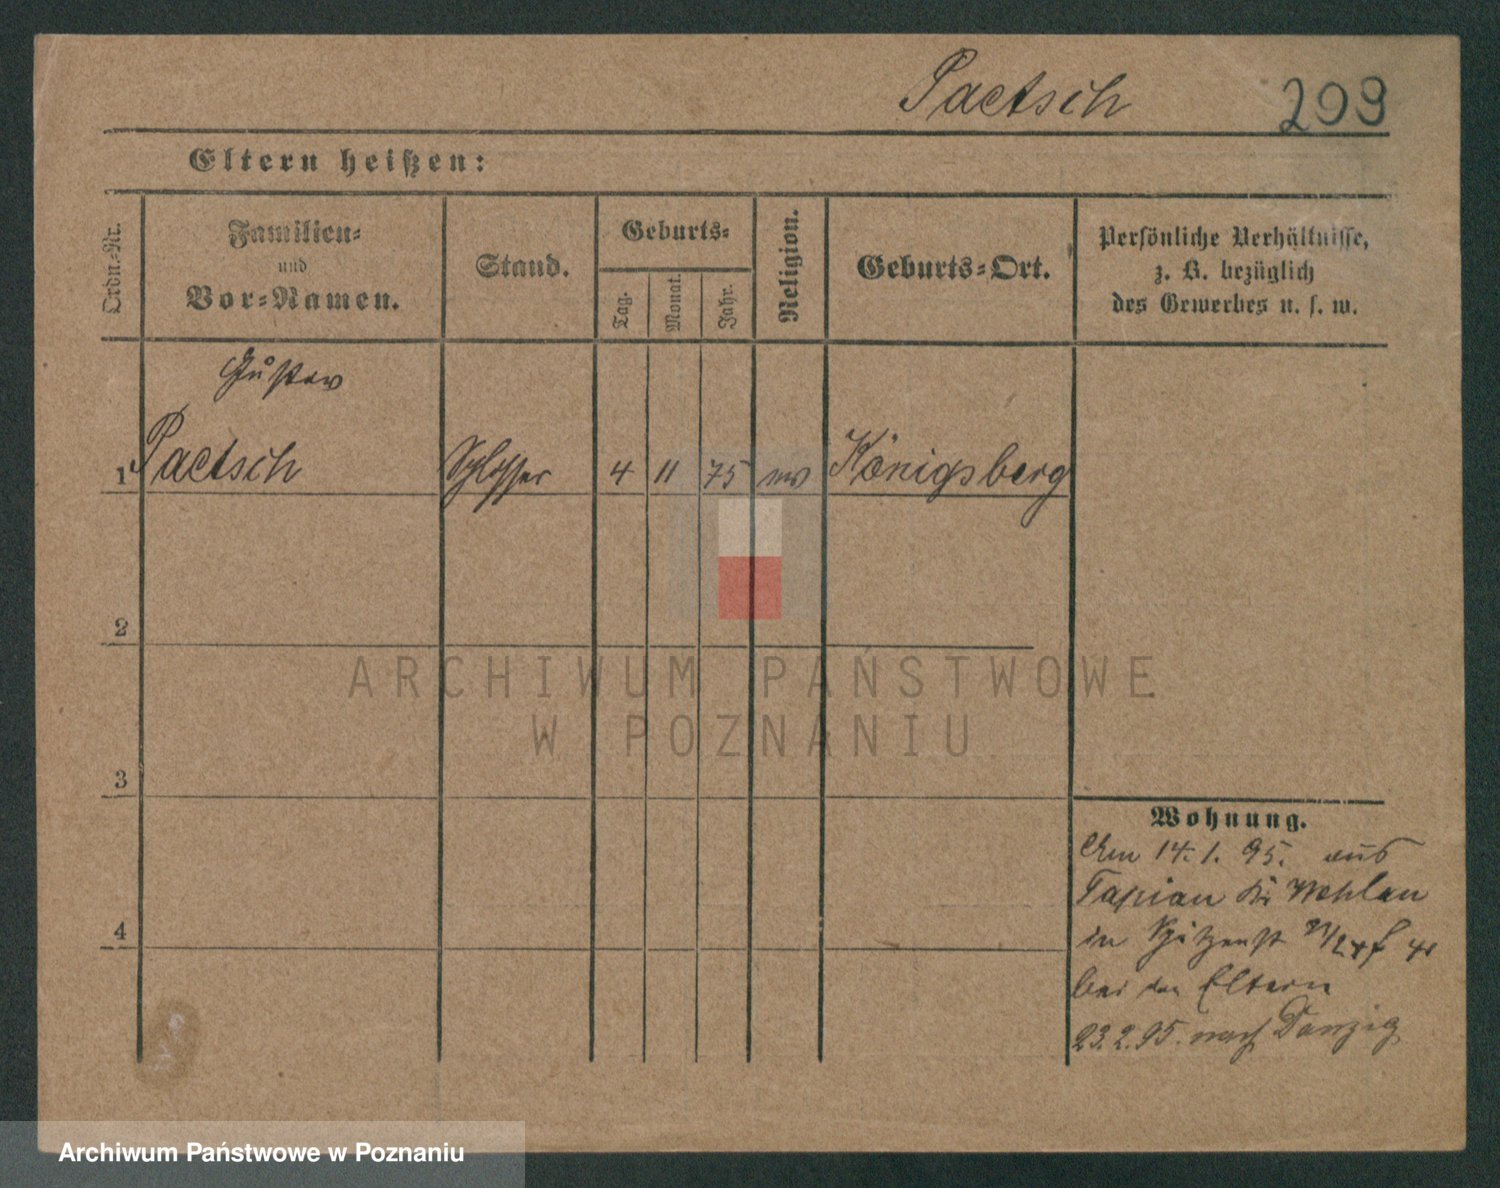 Paetsch 209
Eltern heißen:
Ordn.-Nr.
Familien-
und
Vor-Namen.
Stand.
Geburts-
Tag.
Monat.
Jahr.
Religion.
Geburts-Ort.
Persönliche Verhältnisse,
z. B. bezüglich
des Gewerbes u. s. w.
Gustav
1 Paetsch Schlosser 4 11 75 ev Königsberg
2
3
4
Wohnung.
Am 14.1.95. aus
Tapiau Kr Wehlau
in
bei den Eltern
23.2.95. nach Danzig
ARCHIWUM PAŃSTWOWE
W POZNANIU
Archiwum Państwowe w Poznaniu